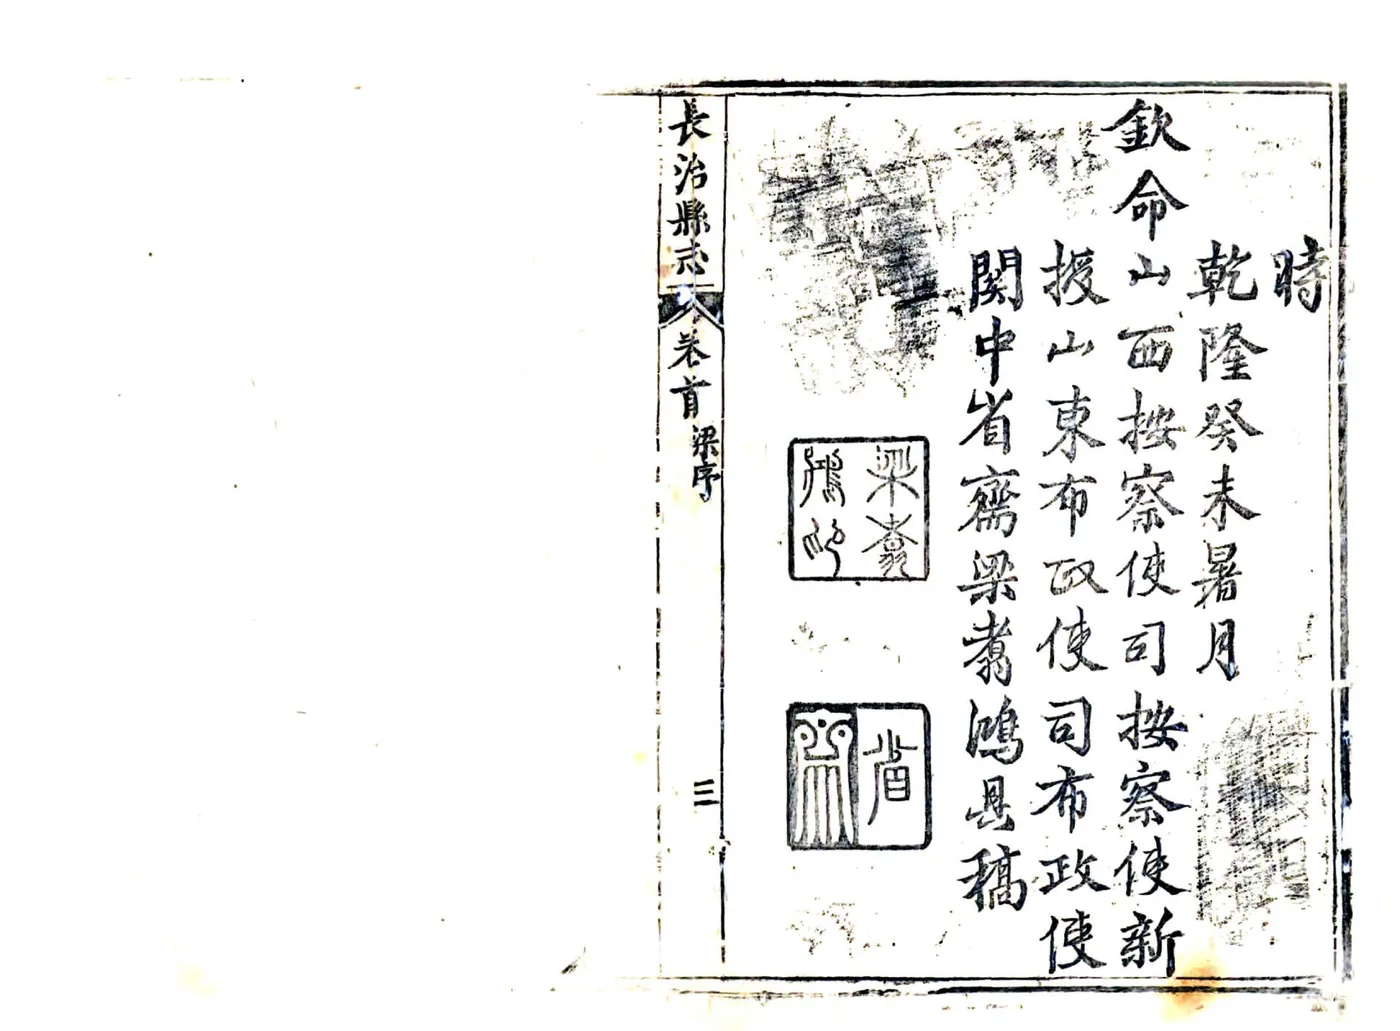 時
乾隆癸未暑月
欽命山西按察使司按察使新
授山東布政使司布政使
関中省齋梁翥鴻具稿
梁翥
鴻印
省
齋
長治縣志 卷首 梁序 三